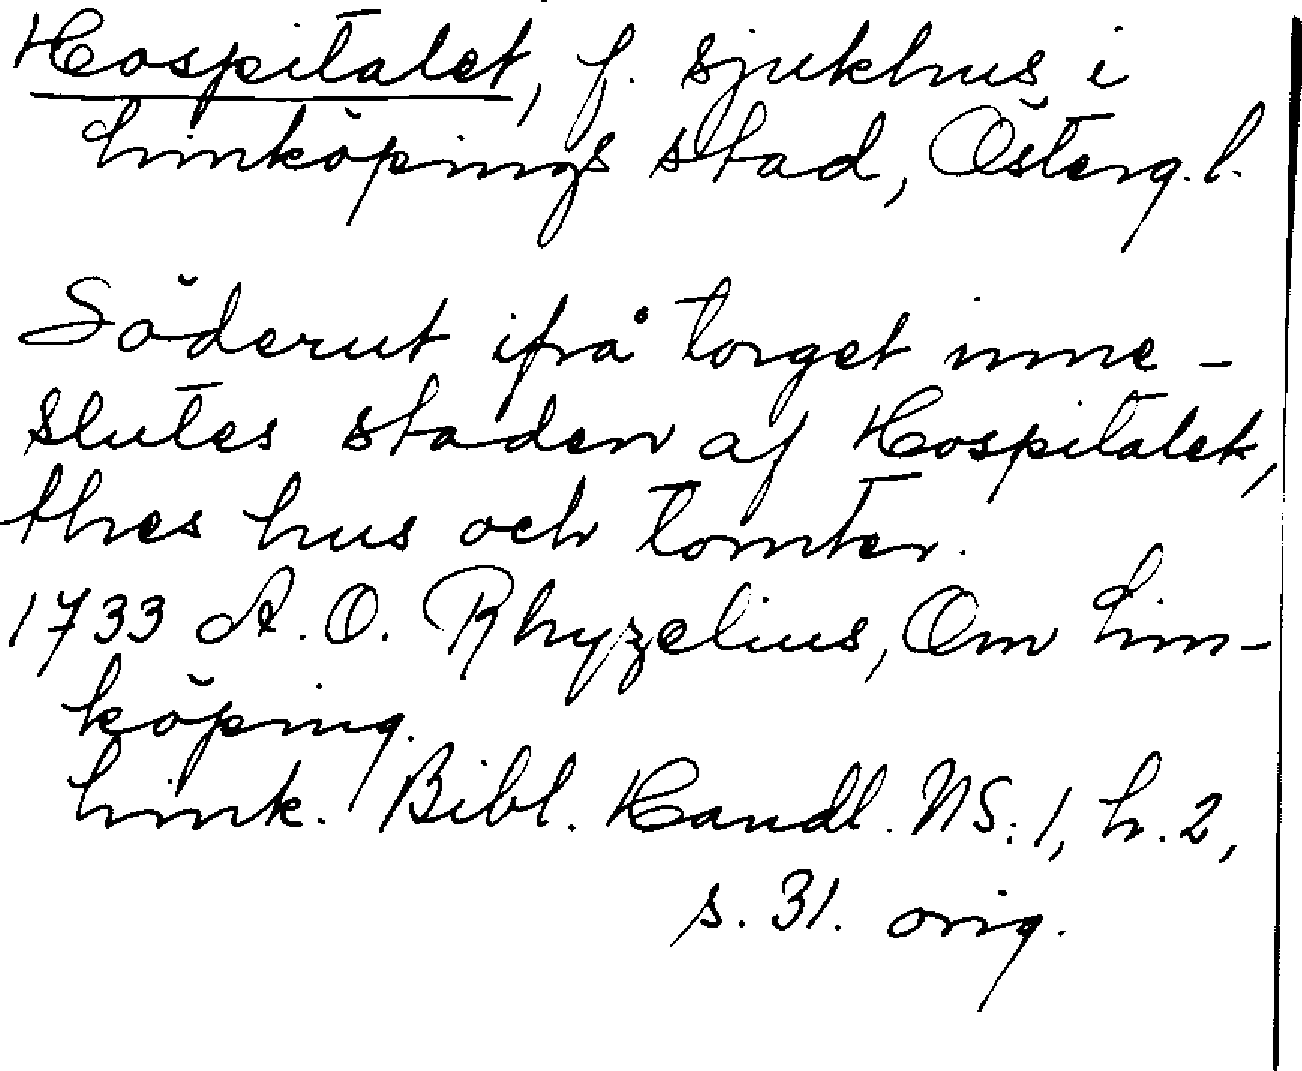 Hospitalet, f. sjukhus i
Linköpings stad, Österg.l.
Söderut ifrå torget inne-
slutes staden af Hospitalet,
thes hus och tomter.
1733 A. O. Rhyzelius, Om Lin-
köping.
Link. Bibl. Handl. NS. 1, h. 2,
s. 31. orig.